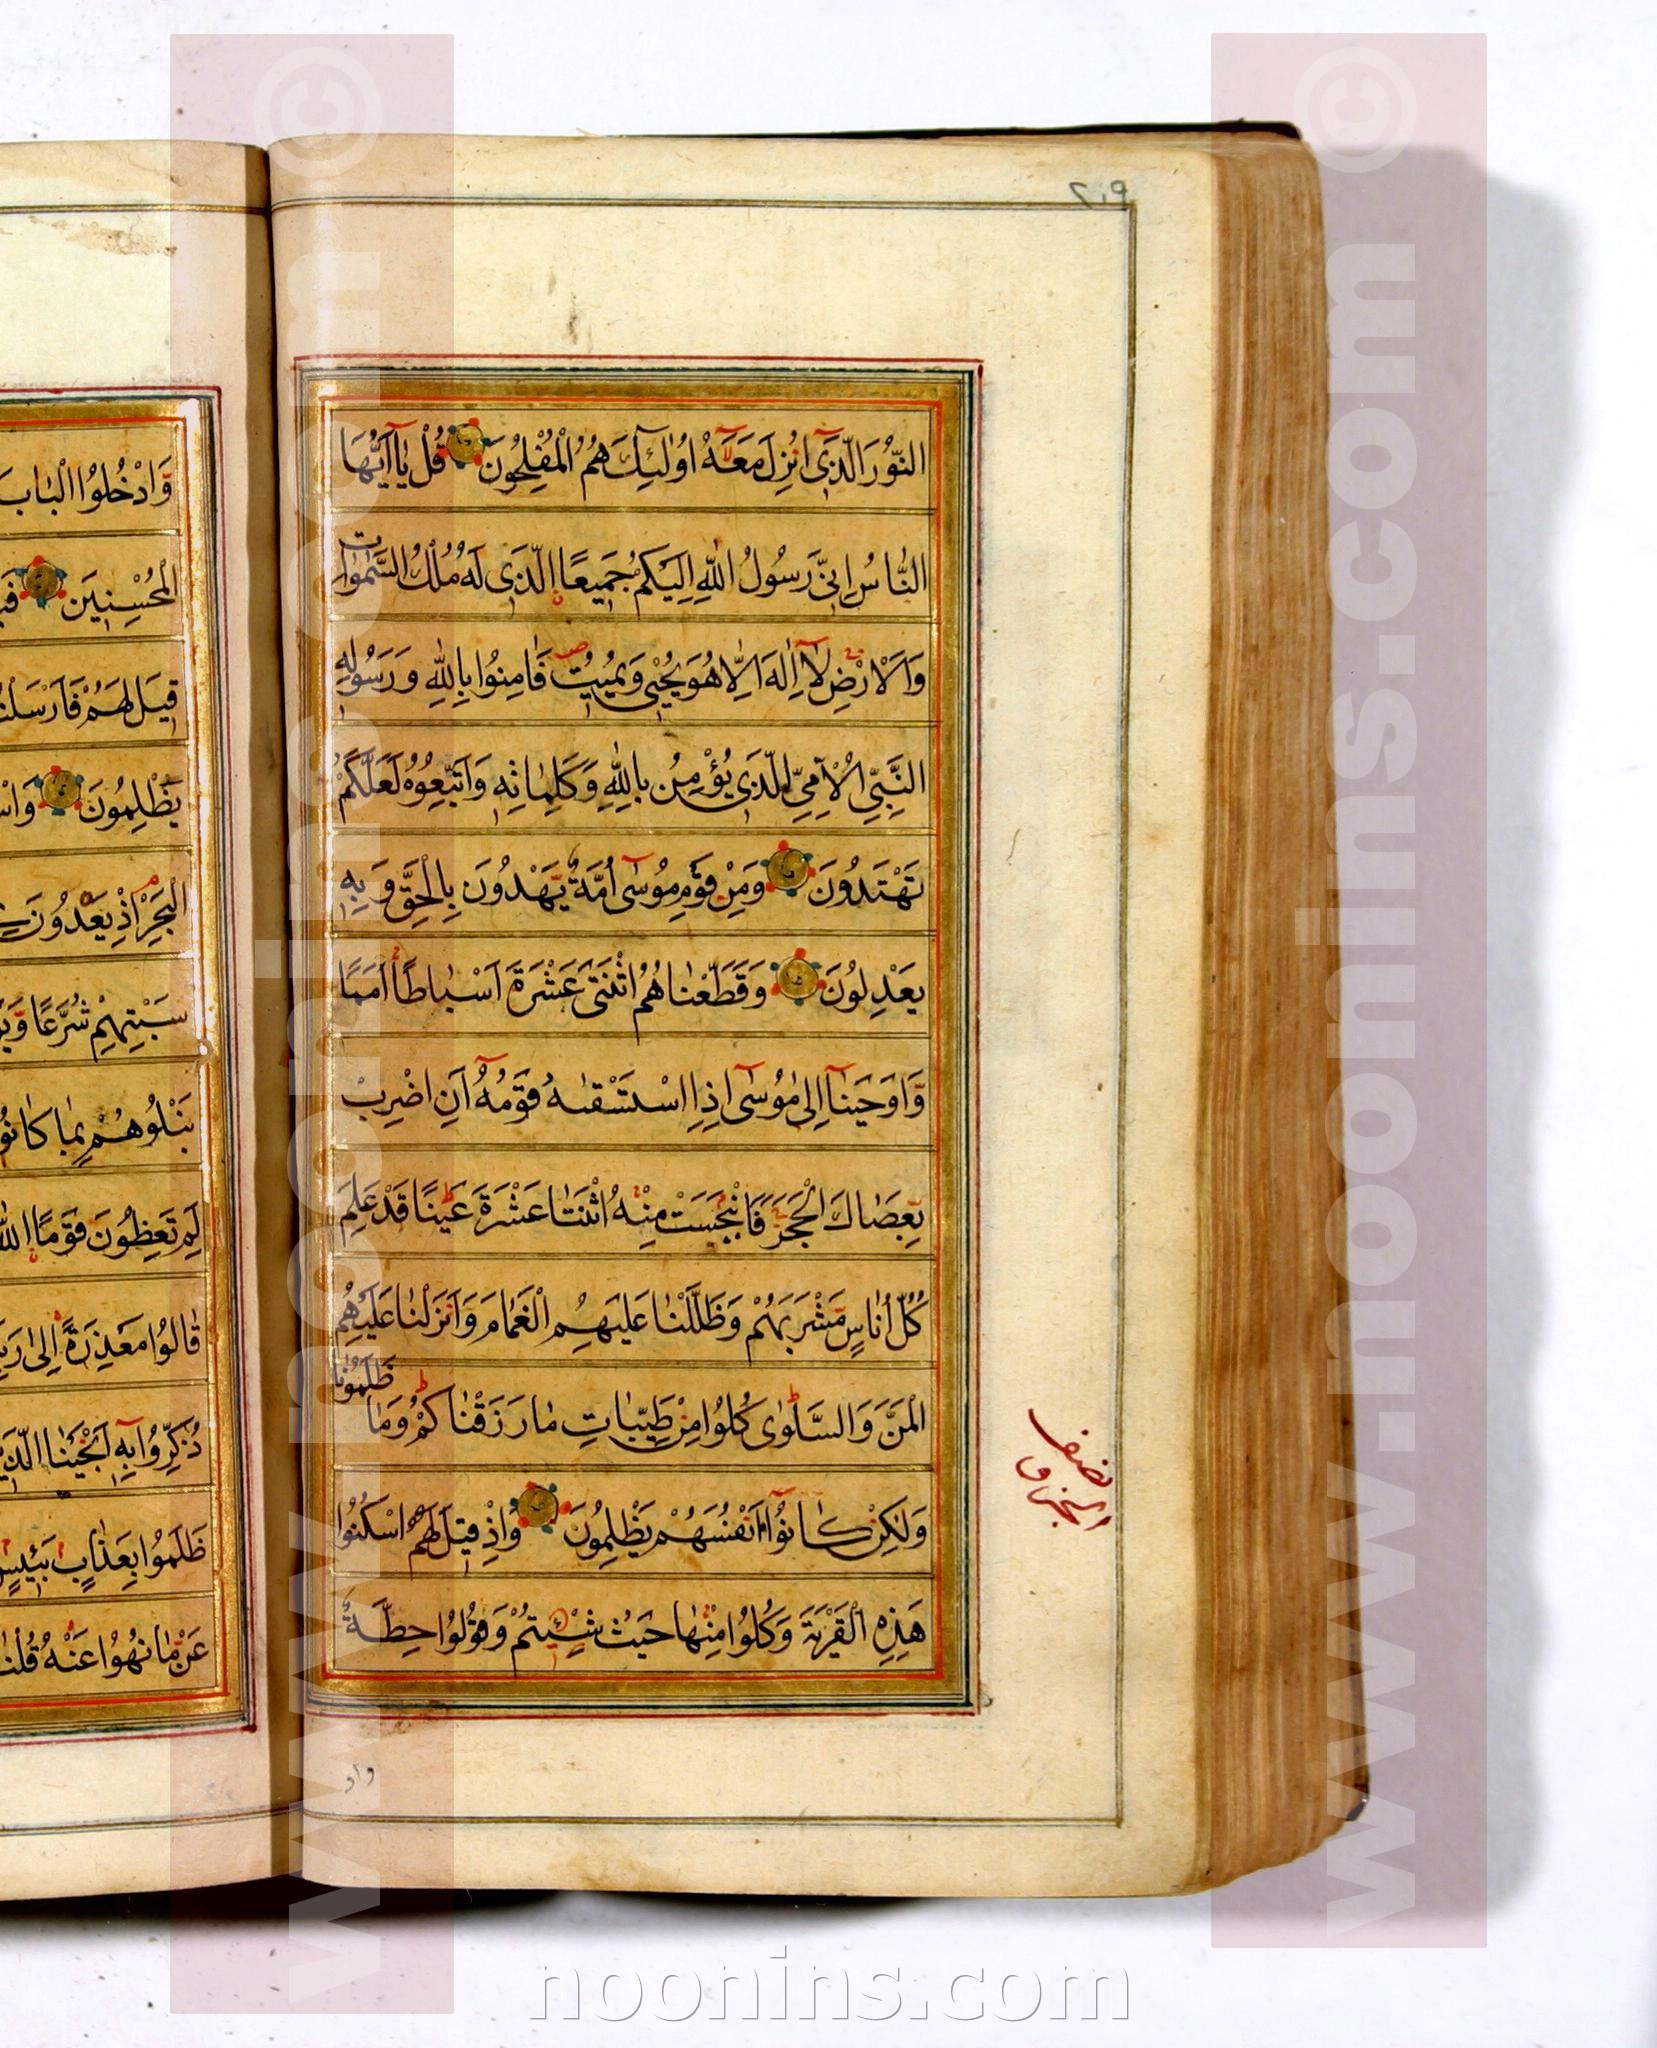 ٢٠٩
النُّورَ الَّذِي اُنْزِلَ مَعَهُ اُولٰئِكَ هُمُ الْمُفْلِحُونَ قُلْ يٰا اَيُّهَا
النّٰاسُ اِنِّي رَسُولُ اللهِ اِلَيْكُمْ جَمِيعًا الَّذِي لَهُ مُلْكُ السَّمٰوٰاتِ
وَالْاَرْضِ لٰا اِلٰهَ اِلّٰا هُوَ يُحْيِي وَيُمِيتُ فَاٰمِنُوا بِاللهِ وَرَسُولِهِ
النَّبِيِّ الْاُمِّيِّ الَّذِي يُؤْمِنُ بِاللهِ وَكَلِمٰاتِهِ وَاتَّبِعُوهُ لَعَلَّكُمْ
تَهْتَدُونَ وَمِنْ قَوْمِ مُوسٰى اُمَّةٌ يَهْدُونَ بِالْحَقِّ وَبِهِ
يَعْدِلُونَ وَقَطَّعْنٰاهُمُ اثْنَتَيْ عَشْرَةَ اَسْبٰاطًا اُمَمًا
وَاَوْحَيْنٰا اِلٰى مُوسٰى اِذِ اسْتَسْقٰىهُ قَوْمُهُ اَنِ اضْرِبْ
بِعَصٰاكَ الْحَجَرَ فَانْبَجَسَتْ مِنْهُ اثْنَتٰا عَشْرَةَ عَيْنًا قَدْ عَلِمَ
كُلُّ اُنٰاسٍ مَشْرَبَهُمْ وَظَلَّلْنٰا عَلَيْهِمُ الْغَمٰامَ وَاَنْزَلْنٰا عَلَيْهِمُ
الْمَنَّ وَالسَّلْوٰى كُلُوا مِنْ طَيِّبٰاتِ مٰا رَزَقْنٰاكُمْ وَمٰا ظَلَمُونٰا
وَلٰكِنْ كٰانُوا اَنْفُسَهُمْ يَظْلِمُونَ وَاِذْ قِيلَ لَهُمُ اسْكُنُوا
هٰذِهِ الْقَرْيَةَ وَكُلُوا مِنْهٰا حَيْثُ شِئْتُمْ وَقُولُوا حِطَّةٌ
نصف
الجزو
واد
وَادْخُلُوا الْبٰابَ
الْمُحْسِنِينَ
قِيلَ لَهُمْ فَاَرْسَلْنٰا
يَظْلِمُونَ
الْبَحْرِ اِذْ يَعْدُونَ
سَبْتِهِمْ شُرَّعًا
نَبْلُوهُمْ بِمٰا كٰانُوا
لِمَ تَعِظُونَ قَوْمًا اللهُ
قٰالُوا مَعْذِرَةً اِلٰى
ذُكِّرُوا بِهِ اَنْجَيْنَا الَّذِينَ
ظَلَمُوا بِعَذٰابٍ بَئِيسٍ
عَنْ مٰا نُهُوا عَنْهُ قُلْنٰا
www.noonins.com ©
www.noonins.com ©
noonins.com